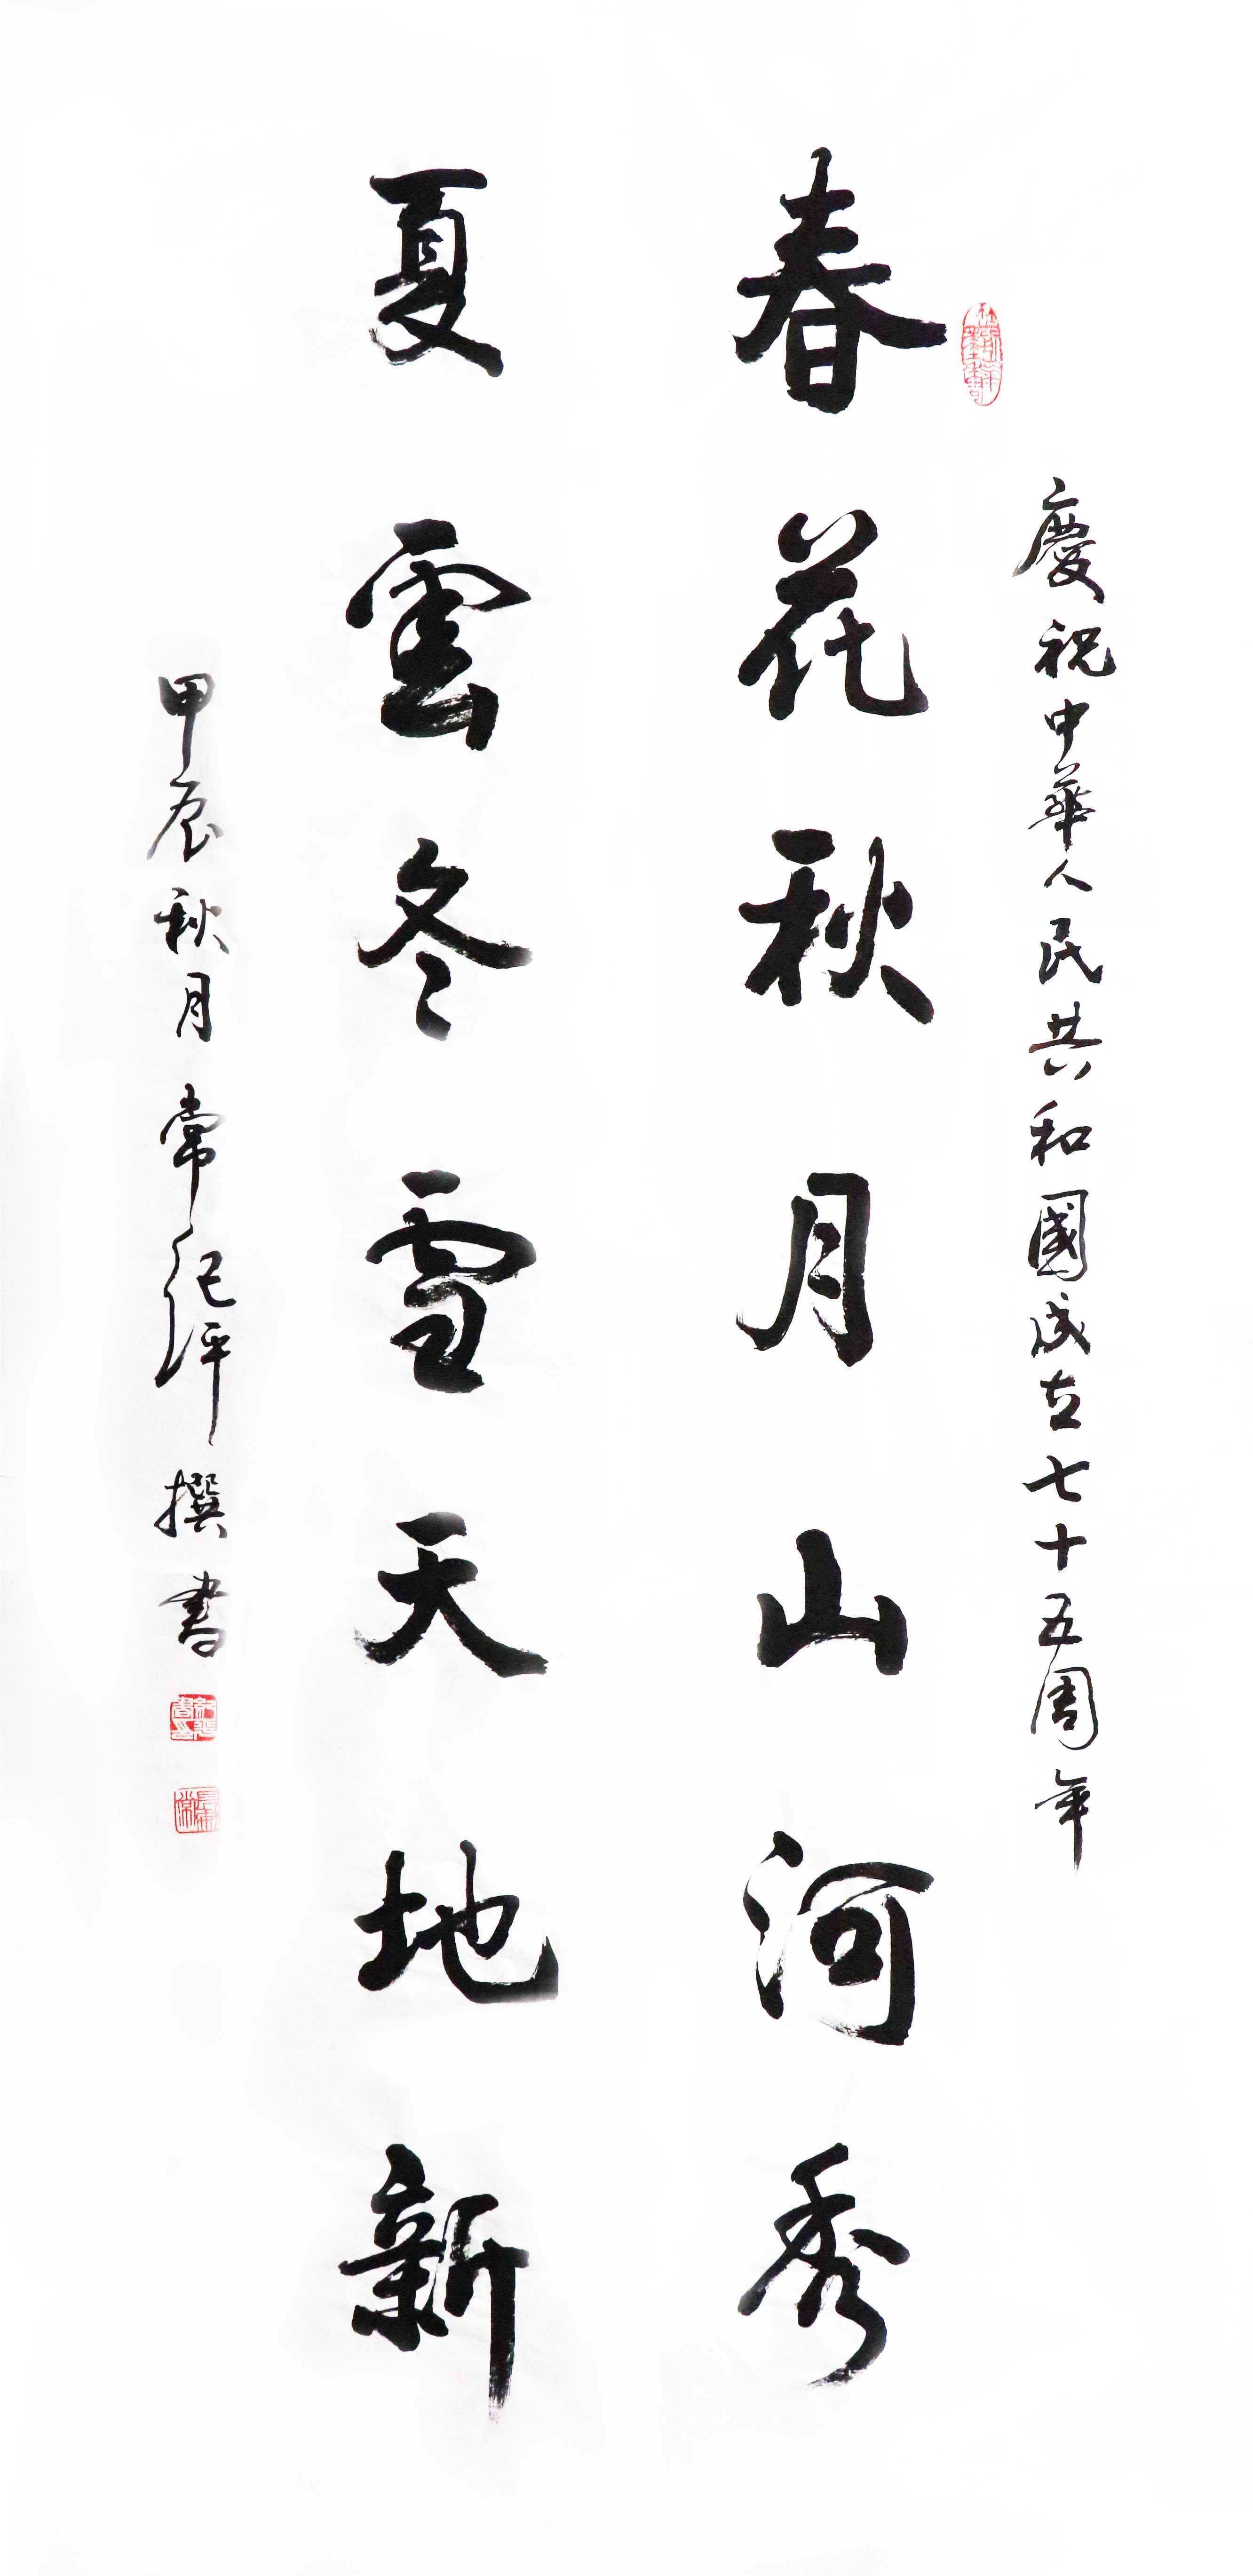 慶祝中華人民共和國成立七十五周年
春花秋月山河秀
夏雲冬雪天地新
甲辰秋月常纪坪撰書